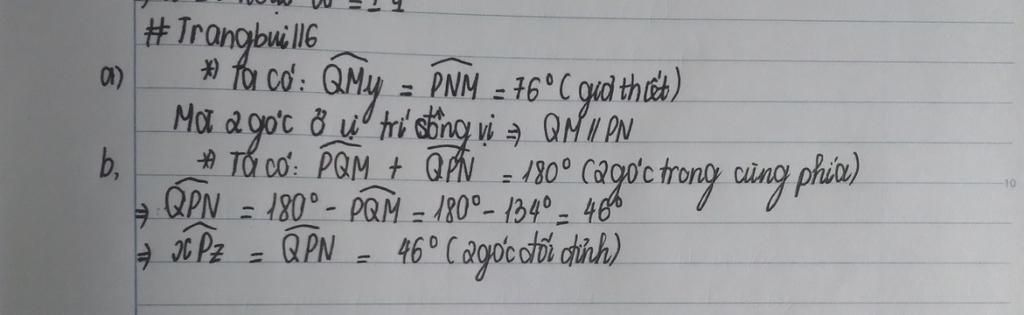 # Trangbui116
a) *) Ta có: QMy = PNM = 76° (giả thiết)
Mà 2 góc ở vị trí đồng vị ⇒ QM // PN
b, *) Ta có: PQM + QPN = 180° (2 góc trong cùng phía)
⇒ QPN = 180° - PQM = 180° - 134° = 46°
⇒ xPz = QPN = 46° (2 góc đối đỉnh)
10